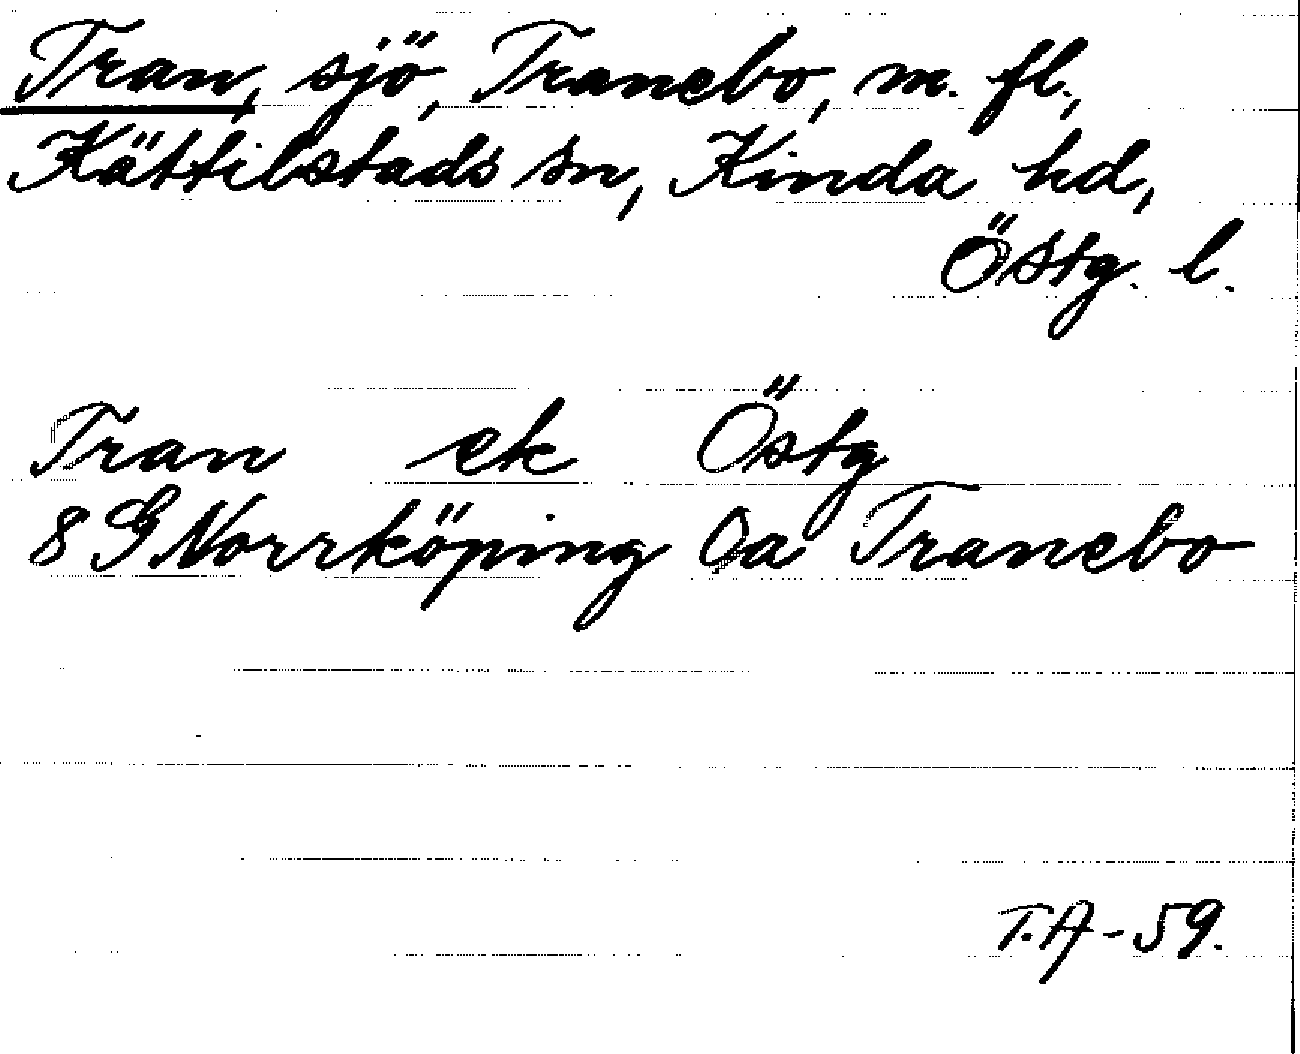 Tran, sjö, Tranebo, m. fl.,
Kättilstads sn, Kinda hd,
Östg. l.
Tran ek Östg
8 G Norrköping Öa Tranebo
T.A-59.